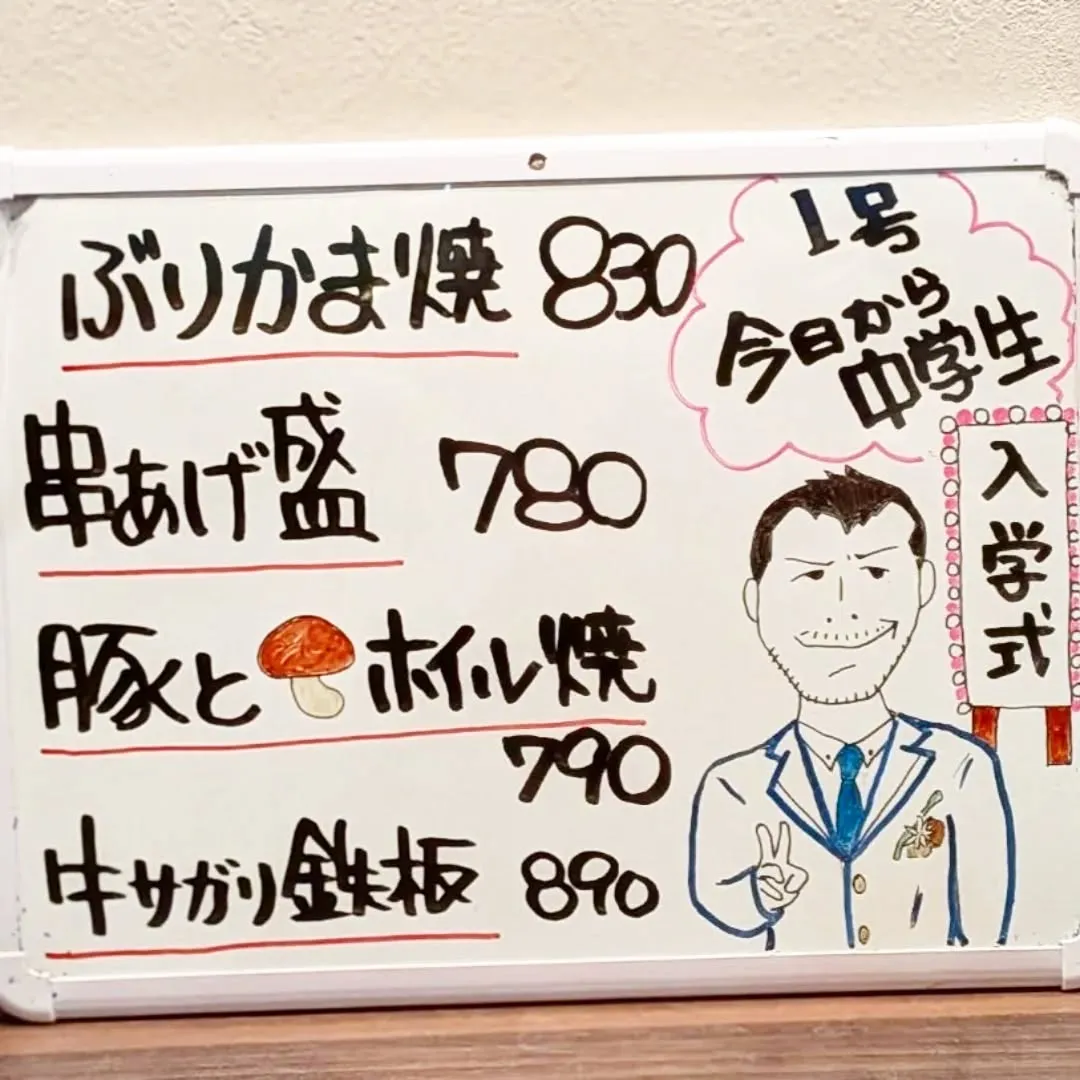 ぶりかま焼 830
串あげ盛 780
豚とホイル焼
790
牛サガリ鉄板 890
1号
今日から
中学生
入学式